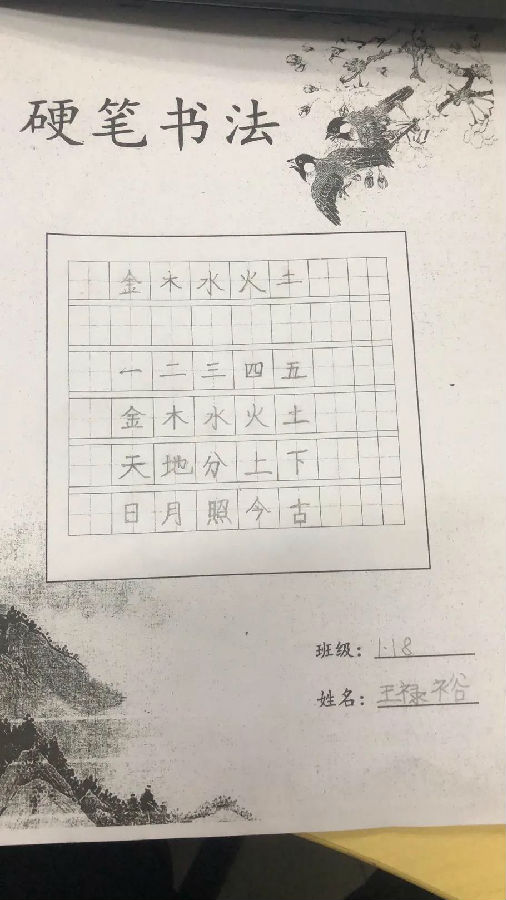 硬笔书法
金木水火土
一二三四五
金木水火土
天地分上下
日月照今古
班级：1·18
姓名：王禄裕